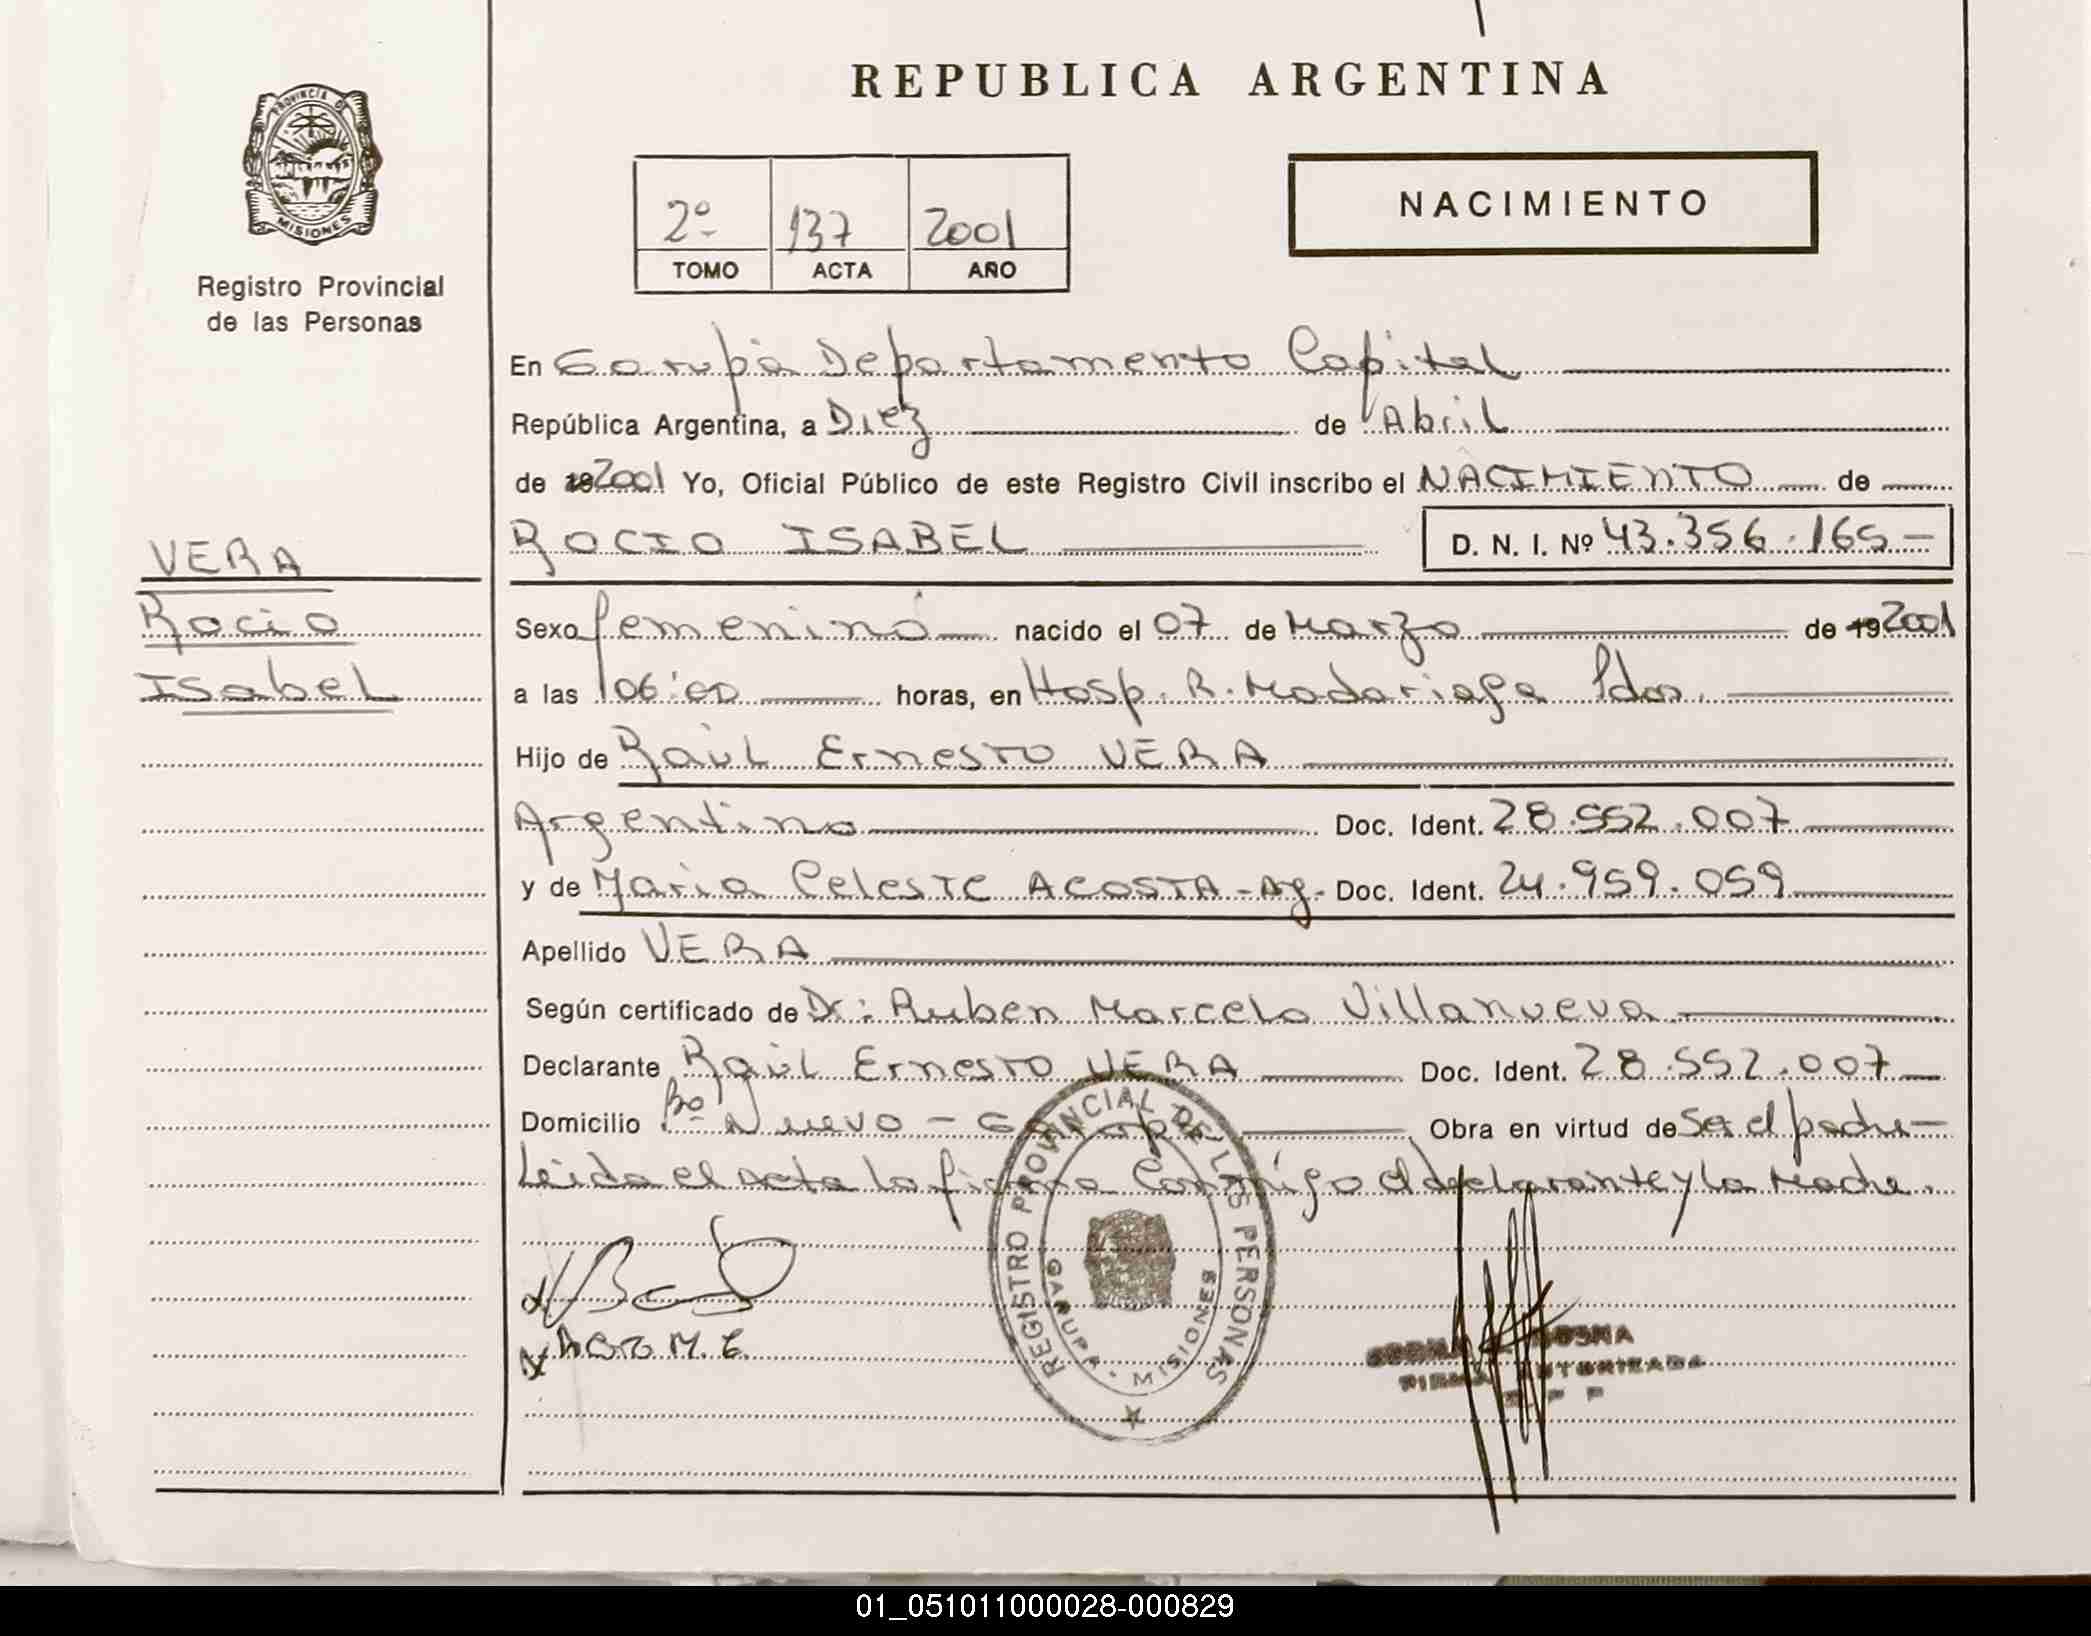 REPUBLICA ARGENTINA
PROVINCIA DE
MISIONES
Registro Provincial
de las Personas
2º 137 2001
TOMO ACTA AÑO
NACIMIENTO
En Garupá Departamento Capital
República Argentina, a Diez de Abril
de 192001 Yo, Oficial Público de este Registro Civil inscribo el NACIMIENTO de
ROCIO ISABEL D. N. I. Nº 43.356.165-
VERA
Rocio
Isabel
Sexo femenino nacido el 07 de Marzo de 192001
a las 06:00 horas, en Hosp. R. Madariaga Pdas.
Hijo de Raúl Ernesto VERA
Argentino Doc. Ident. 28.552.007
y de Maria Celeste ACOSTA - Ag. - Doc. Ident. 24.959.059
Apellido VERA
Según certificado de Dr: Ruben Marcelo Villanueva
Declarante Raúl Ernesto VERA Doc. Ident. 28.552.007
Domicilio Bº Nuevo - Garupá Obra en virtud de Ser el padre
Leida el acta la firma Conmigo el declarante y la Madre.
REGISTRO PROVINCIAL DE LAS PERSONAS
GARUPA - MISIONES
M. C.
FIRMA AUTORIZADA
01_051011000028-000829